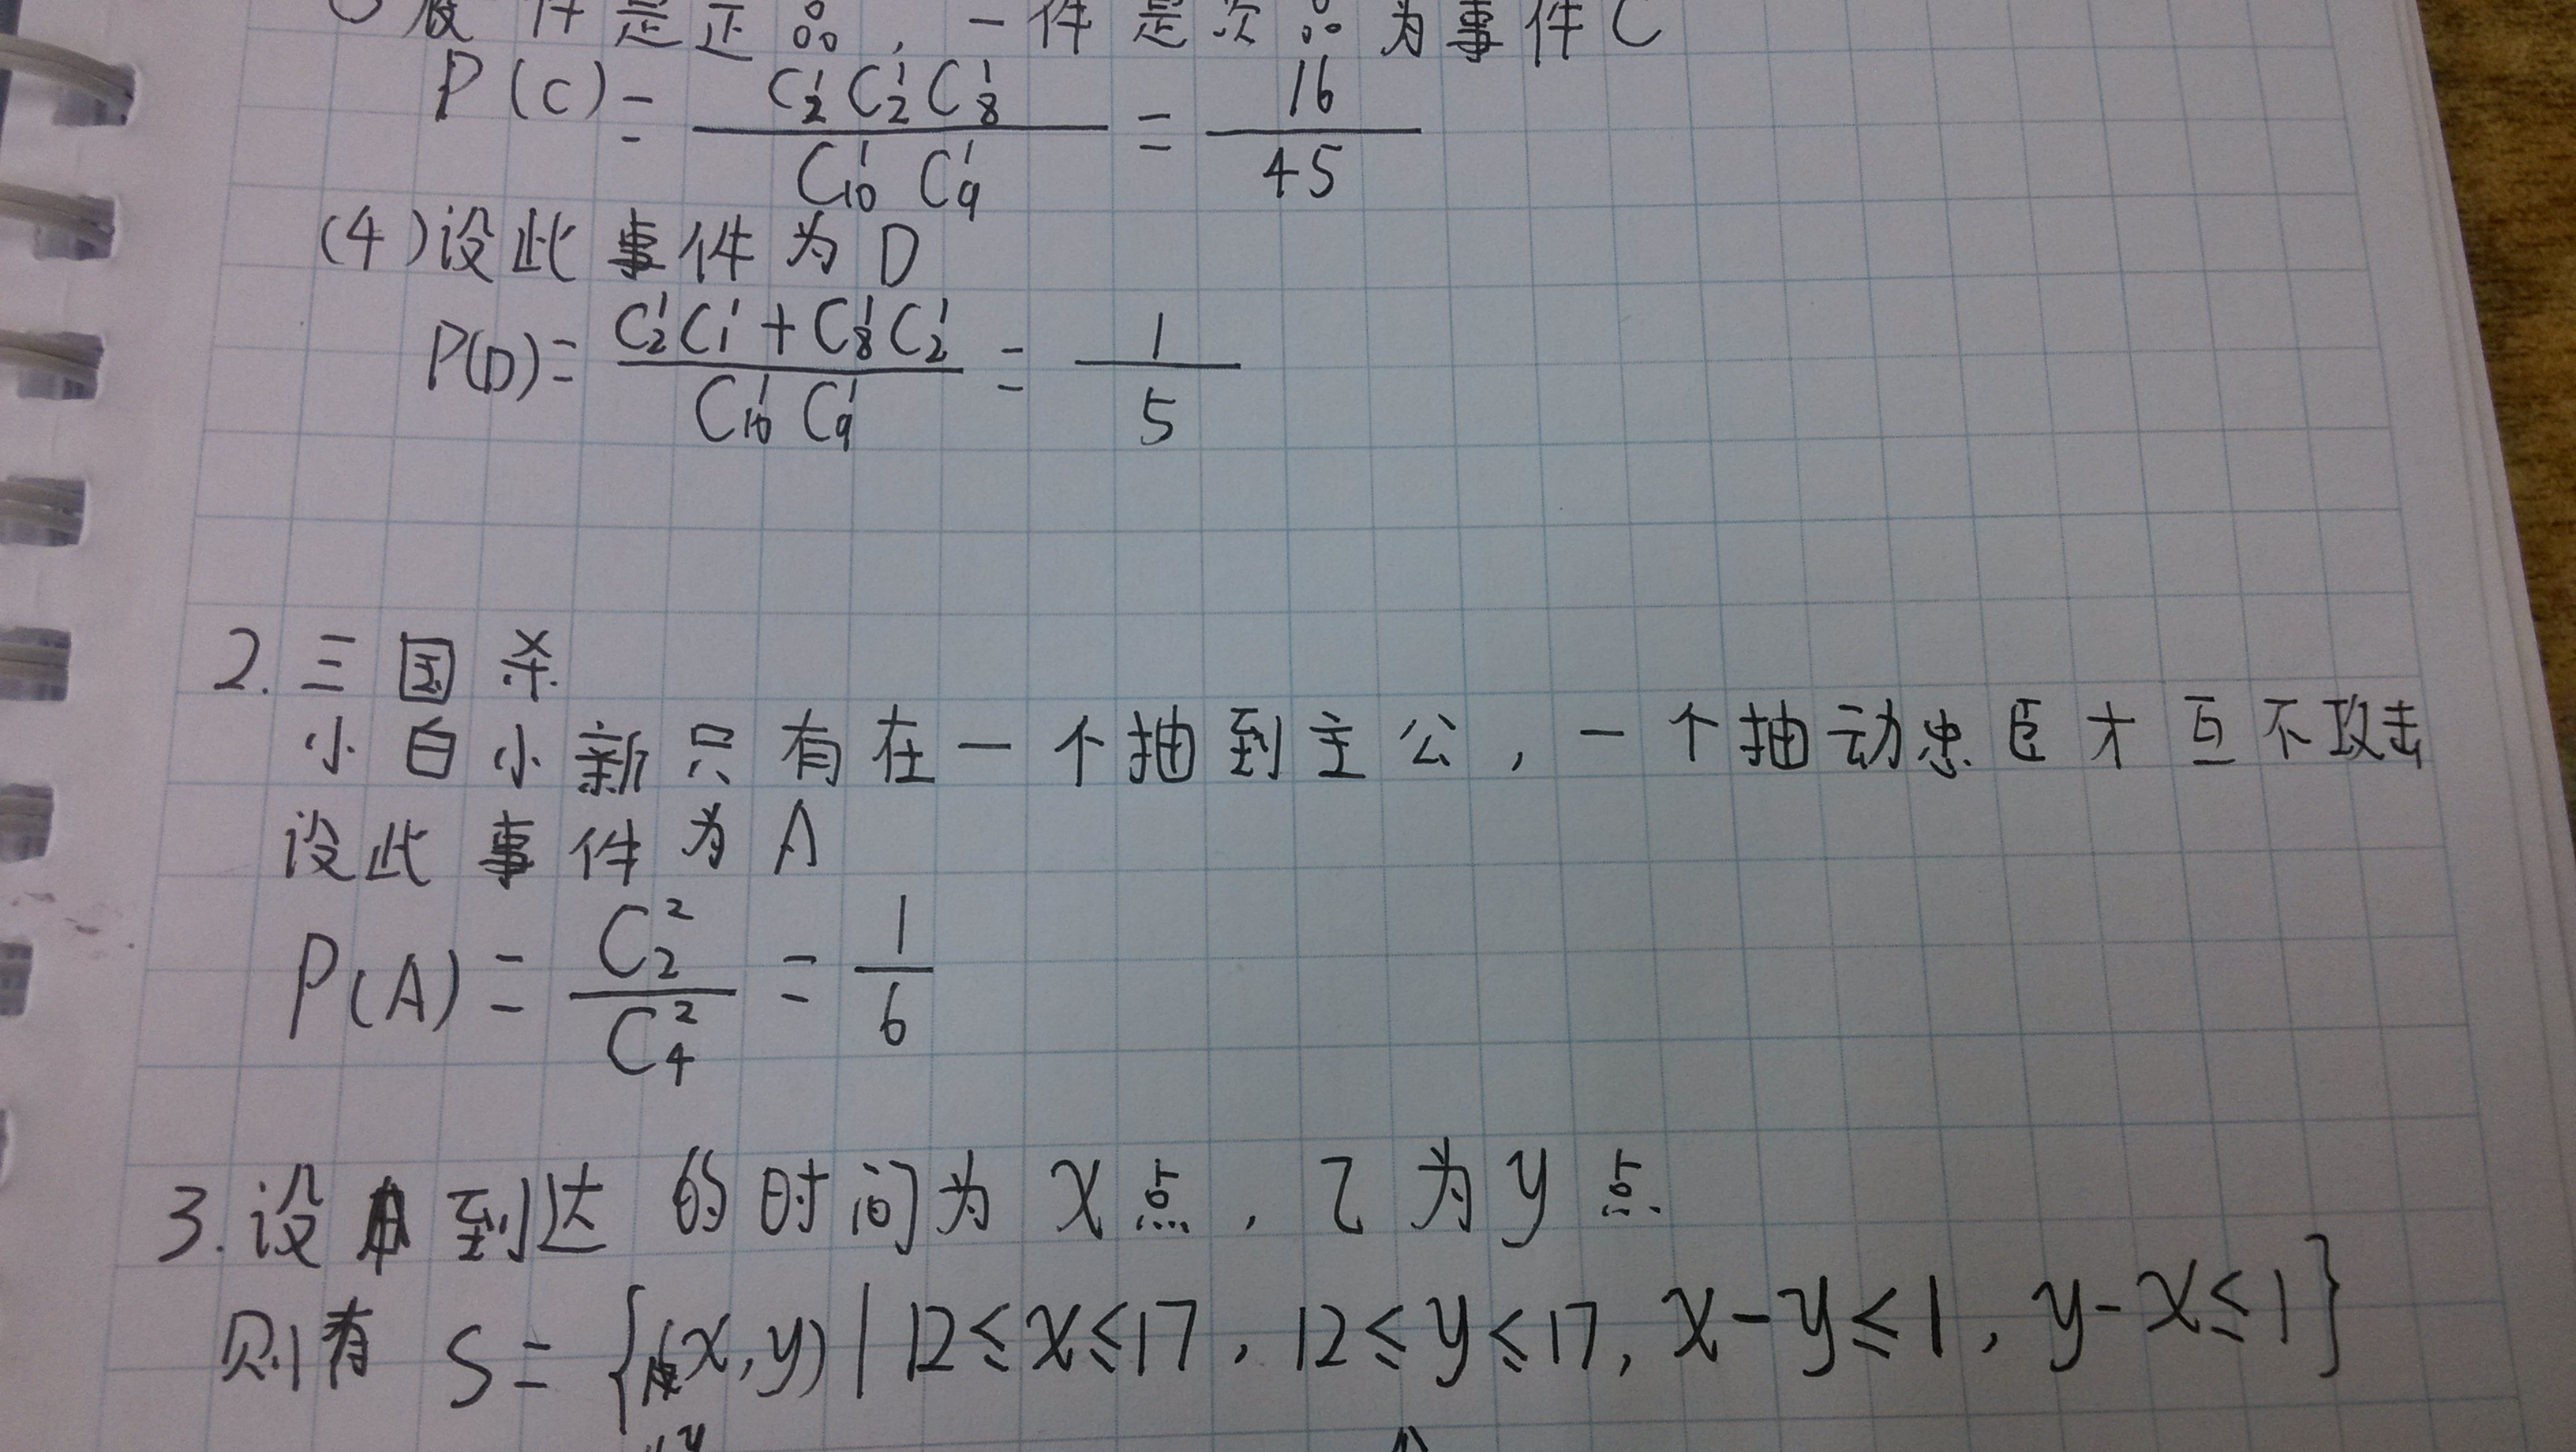 设一件是正品,一件是次品为事件C
P(C)= C₂¹C₂¹C₈¹ / C₁₀¹ C₉¹ = 16/45
(4)设此事件为D
P(D)= C₂¹C₁¹+C₈¹C₂¹ / C₁₀¹ C₉¹ = 1/5
2.三国杀
小白小新只有在一个抽到主公,一个抽动忠臣才互不攻击
设此事件为A
P(A)= C₂² / C₄² = 1/6
3.设甲到达的时间为x点,乙为y点
则有 S={(x,y)|12≤x≤17,12≤y≤17,x-y≤1,y-x≤1}